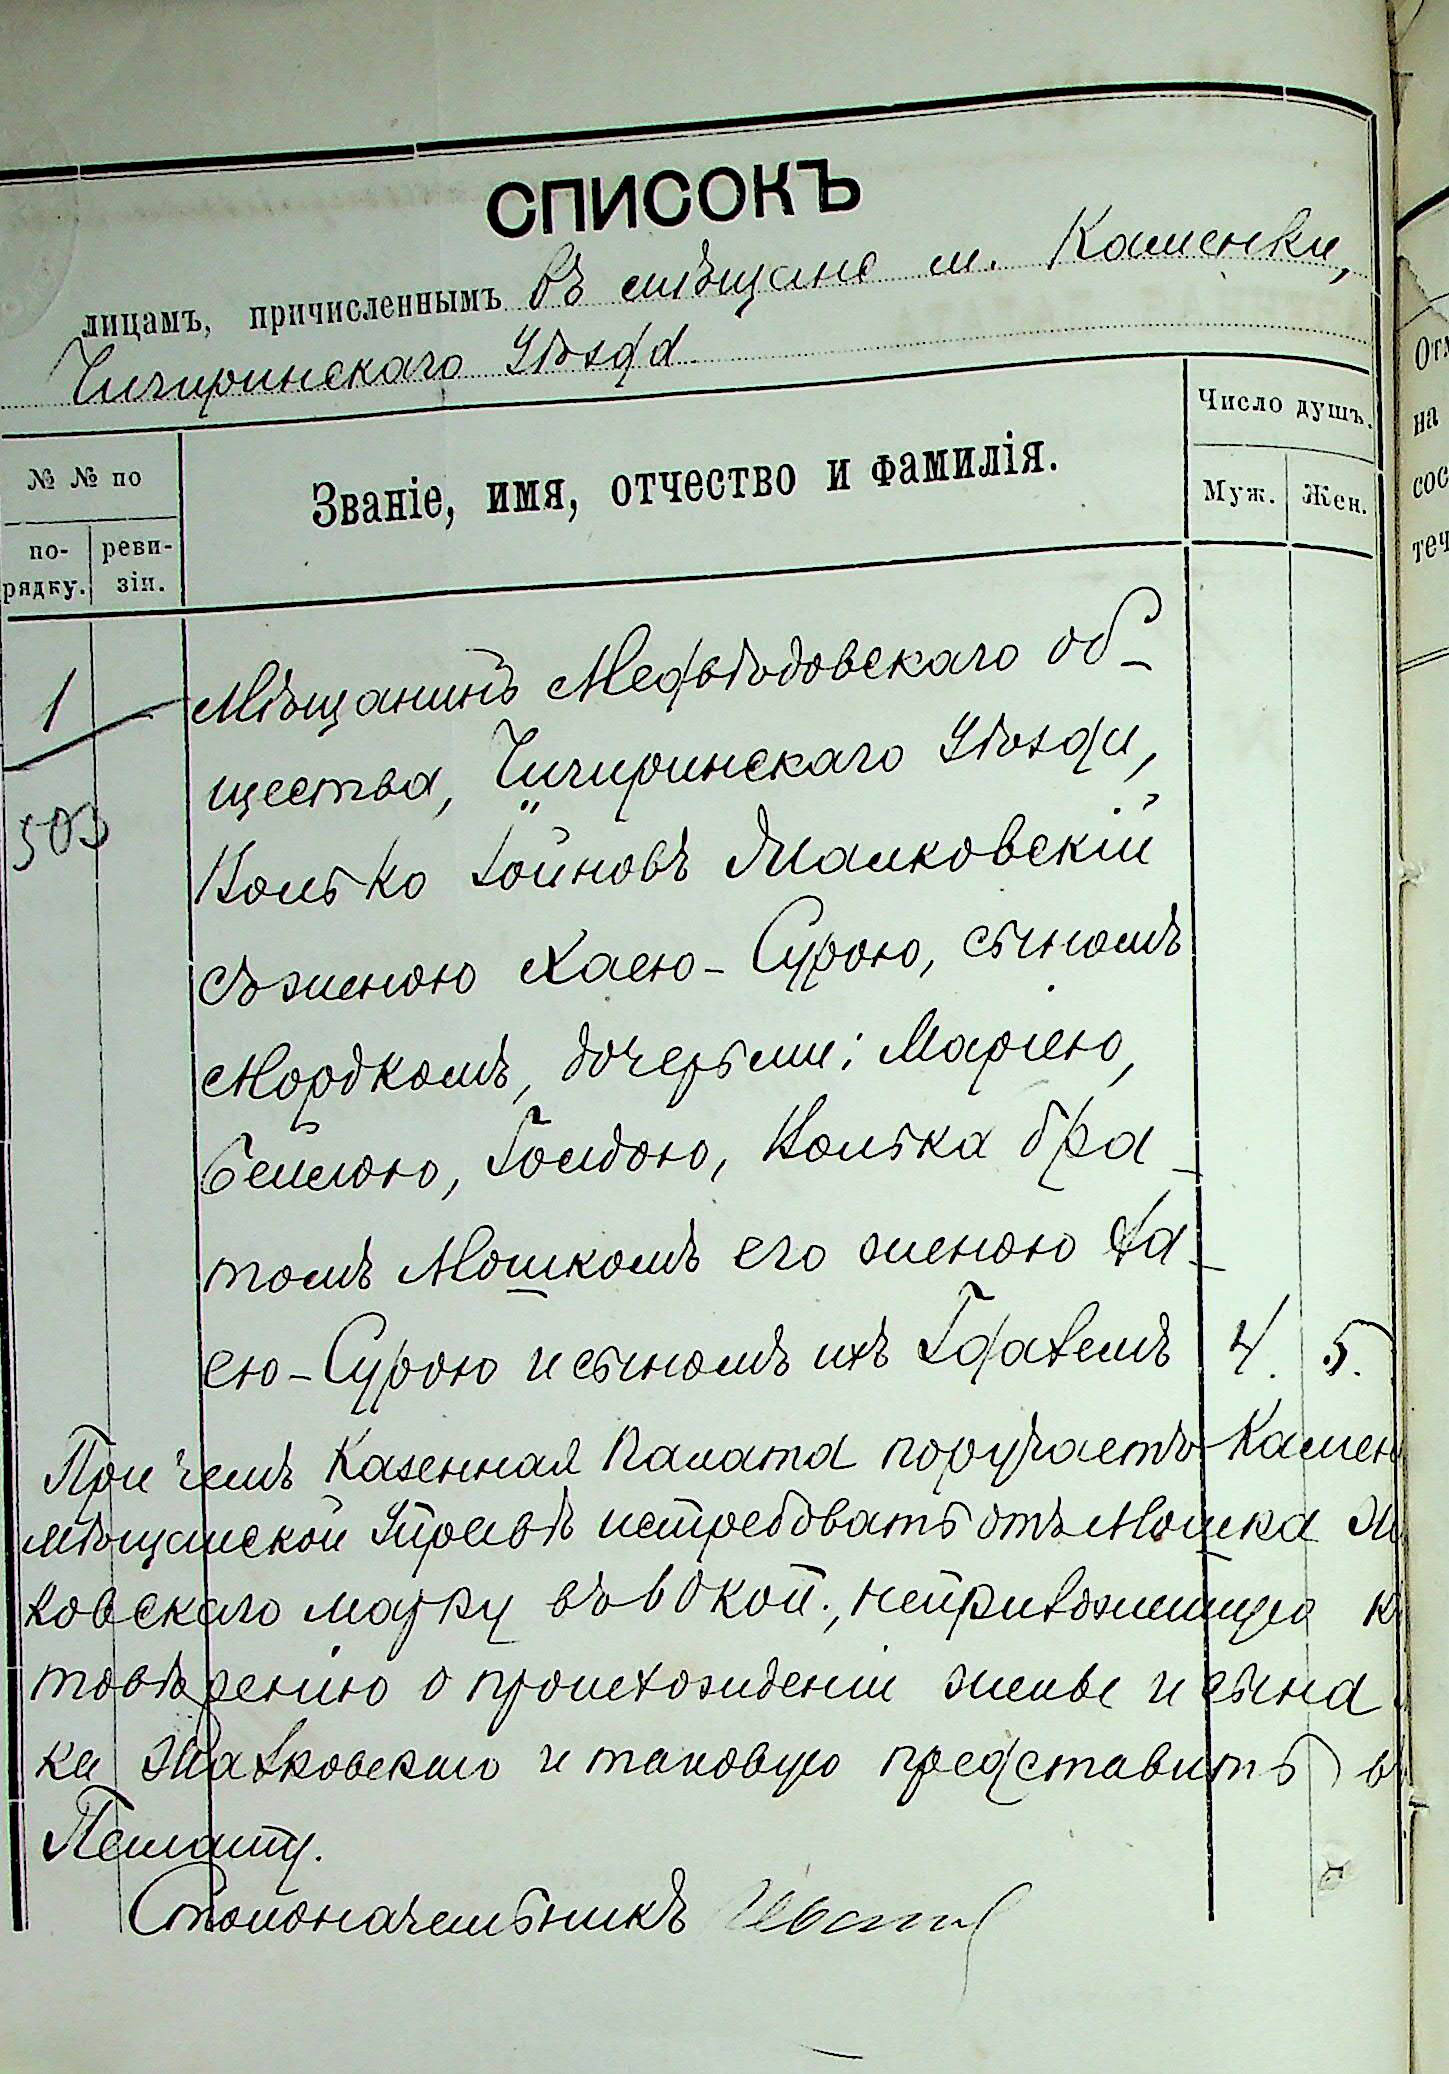 СПИСОКЪ
лицамъ, причисленнымъ въ мѣщане м. Каменки,
Чигиринскаго Уѣзда
№ № по
по-
рядку.
реви-
зіи.
Званіе, имя, отчество и фамилія.
Число душъ.
Муж.
Жен.
1
503
Мѣщанинъ Медвѣдовскаго об-
щества, Чигиринскаго Уѣзда,
Волько Іойновъ
съ женою Хаею-Сурою, сыномъ
Мордкомъ, дочерьми: Маріею,
Бейлою, Голдою, Волька бра-
томъ Мошкомъ его женою Ха-
ею-Сурою и сыномъ ихъ 4. 5.
При чемъ Казенная Палата поручаетъ Камен
мѣщанской Управѣ истребовать отъ Мошка
ковскаго марку въ коп., неприложенную
товѣренію о происхожденіи жены и сына
ки и таковую представить въ
Палату.
Столоначальникъ
От
на
сос
теч